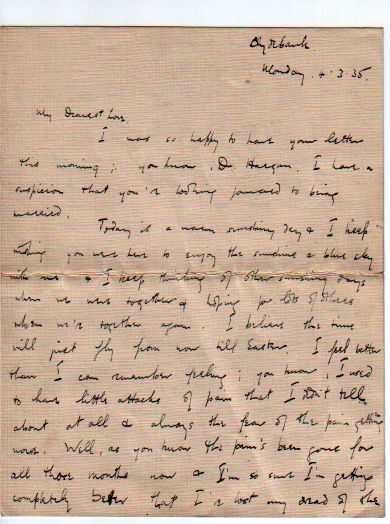 Clydebank
Monday. 4.3.35.
My Dearest Love,
I was so happy to have your letter
this morning; you know, Dr. I have a
suspicion that you're looking forward to being
married.
Today is a warm sunshiny day & I keep
wishing you were here to enjoy the sunshine & blue sky
with me & I keep thinking of other sunshiny days
when we were together & hoping for lots of others
when we're together again. I believe this time
will just fly from now till Easter. I feel better
than I can remember feeling; you know I used
to have little attacks of pain that I didn't tell
about at all & always the fear of the pain getting
worse. Well, as you know the pain's been gone for
all those months now & I'm so sure I'm getting
completely better that I've lost my dread of the